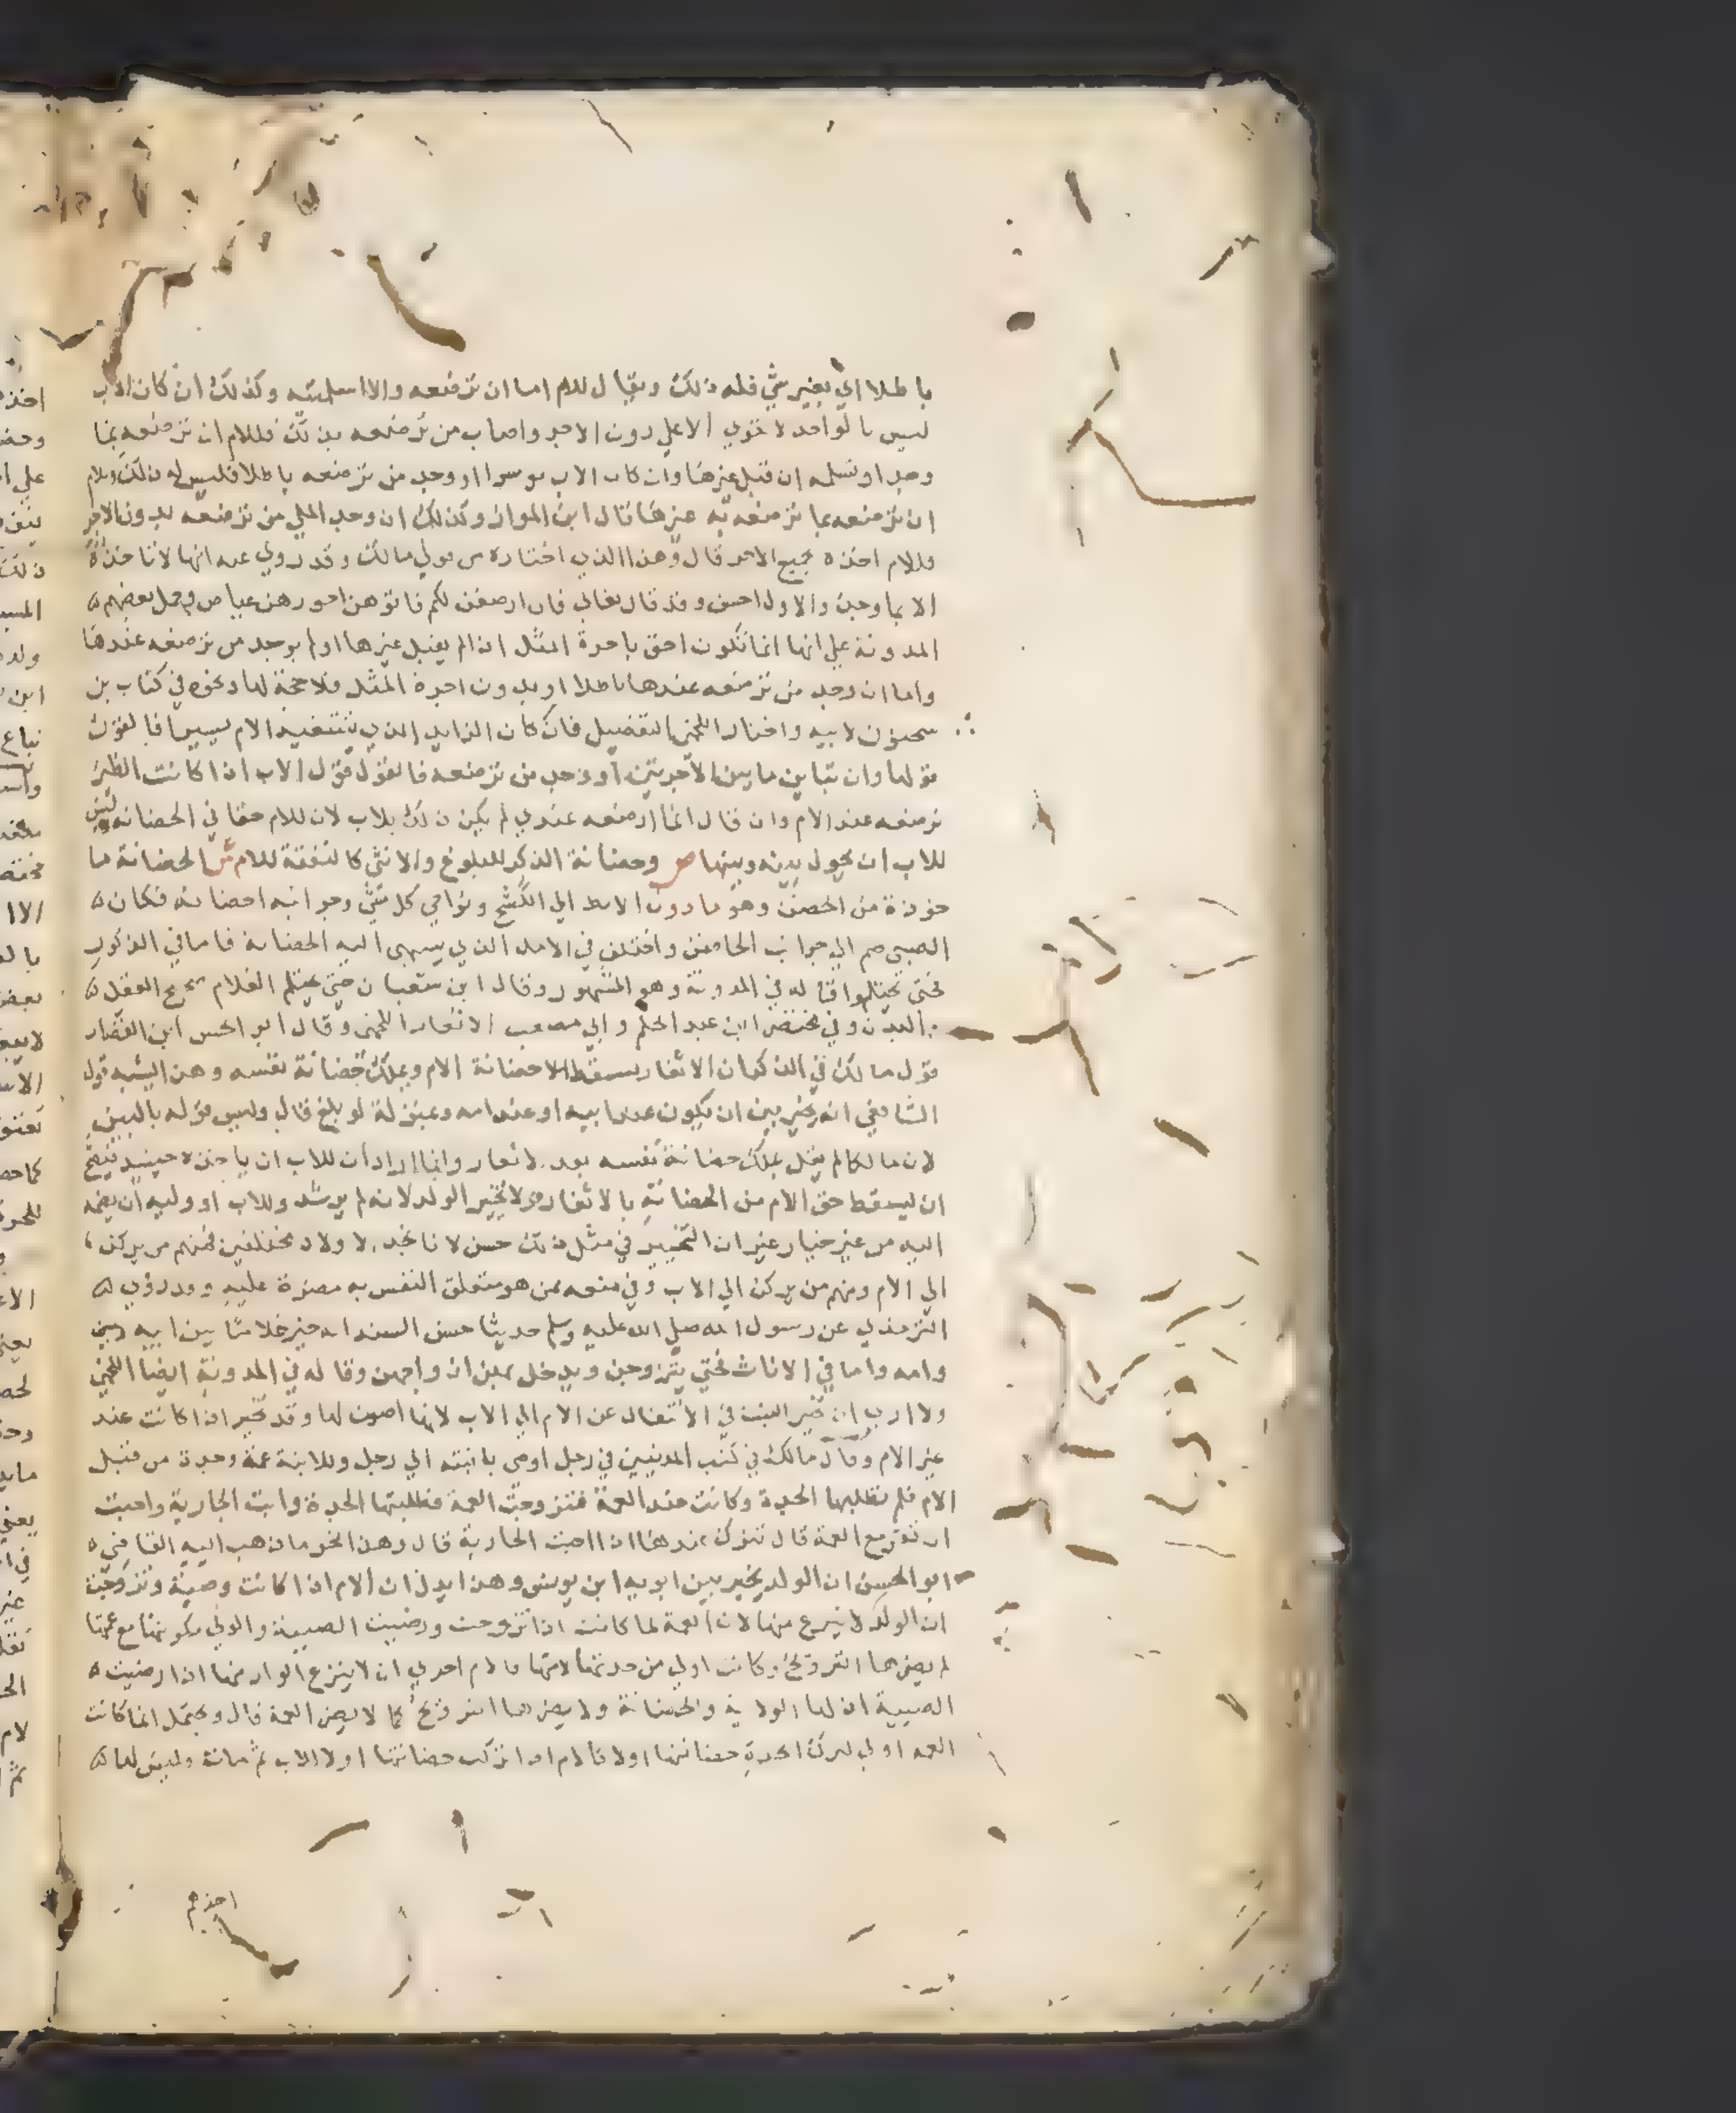 باطلا اي بغير شي فله ذلك ويقال للام اما ان ترضعه والا اسلمتيه وكذلك ان كان الاب
ليس بالواحد لا يقوي الا علي دون الاجر واصاب من ترضعه بذلك فللام ان ترضعه بما
وجد او تسلمه ان قبل غيرها وان كان الاب موسرا ووجد من ترضعه باطلا فليس له ذلك وللام
ان ترضعه بما ترضعه به غيرها قال ابن المواز وكذلك ان وجد الملي من ترضعه بدون الاجر
فللام اخذه بجميع الاجر قال وهذا الذي اختاره من قولي مالك وقد روي عنه انها لا تاخذه
الا بما وجد والاول احسن وقد قال تعالي فان ارضعن لكم فاتوهن اجورهن عياض وحمل بعضهم
المدونة علي انها انما تكون احق باجرة المثل اذا لم يقبل غيرها او لم يوجد من ترضعه عندها
واما ان وجد من ترضعه عندها باطلا او بدون اجرة المثل فلا حجة لها ونحوه في كتاب بن
سحنون لابيه واختار اللخمي التفصيل فان كان الزايد الذي تنتفيد الام يسيرا فالقول
قولها وان تباين ما بين الاجرتين او وجد من ترضعه فالقول قول الاب اذا كانت الظير
ترضعه عند الام وان قال انما ارضعه عندي لم يكن ذلك للاب لان للام حقا في الحضانة وليس
للاب ان يحول بينه وبينها ص وحضانة الذكر للبلوغ والانثي كالنفقة للام ش الحضانة ما
خوذة من الحضن وهو ما دون الابط الي الكشح ونواحي كل شي وجوانبه احضانه فكان
الصبي ضم الي جوانب الحاضن واختلف في الامد الذي ينتهي اليه الحضانة فاما في الذكور
فحتي يحتلموا قاله في المدونة وهو المشهور وقال ابن شعبان حتي يحتلم الغلام صحيح العقل
البدن وفي مختصر ابن عبد الحكم وابي مصعب الاثغار اللخمي وقال ابو الحسن ابن القصار
قول مالك في الذكران الاثغار يسقط الاحضانة الام ويملك حضانة نفسه وهذا اشبه قول
الشافعي انه يخير بين ان يكون عند ابيه او عند امه وبمنزلة لو بلغ قال وليس قوله بالبين
لان مالكا لم يقل يملك حضانة نفسه بعد الاثغار وانما اراد ان للاب ان ياخذه حينيذ فيصح
ان يسقط حق الام من الحضانة بالاثغار ولا يخير الولد لانه لم يرشد وللاب او وليه ان يضمه
اليه من غير خيار غير ان التخيير في مثل ذلك حسن لانا نجد الاولاد مختلفين فمنهم من يركن
الي الام ومنهم من يركن الي الاب وفي منعه ممن هو متعلق النفس به مضرة عليه وقد روي
الترمذي عن رسول الله صلي الله عليه وسلم حديثا حسن السند انه خير غلاما بين ابيه وبين
وامه واما في الاناث فحتي يتزوجن ويدخل بهن ازواجهن وقاله في المدونة ايضا اللخمي
ولا اري ان تخير البنت في الانتقال عن الام الي الاب لانها اصون لها وقد تخير اذا كانت عند
غير الام وقال مالك في كتب المدنيين في رجل اوصي بابنته الي رجل وللابنة عمة وجدة من قبل
الام فلم تطلبها الجدة وكانت عند العمة فتزوجت العمة فطلبتها الجدة وابت الجارية واحبت
ان تقر مع العمة قال تترك عندها اذا احبت الجارية قال وهذا نحو ما ذهب اليه القاضي
ابو الحسن ان الولد يخير بين ابويه ابن يونس وهذا يدل ان الام اذا كانت وصية وتزوجت
ان الولد لا ينزع منها لان العمة لما كانت اذا تزوجت ورضيت الصبية والولي بكونها مع عمتها
لم يضرها التزويج وكانت اولي من جدتها لامها فالام احري ان لا ينزع الولد منها اذا رضيت
الصبية اذ لها الولاية والحضانة ولا يضرها التزويج كما لا يضر العمة قال ويحتمل انما كانت
العمة اولي لترك الجدة حضانتها اولا فالام اذا تركت حضانتها اولا للاب ثم مات فليس لها
اخذهم